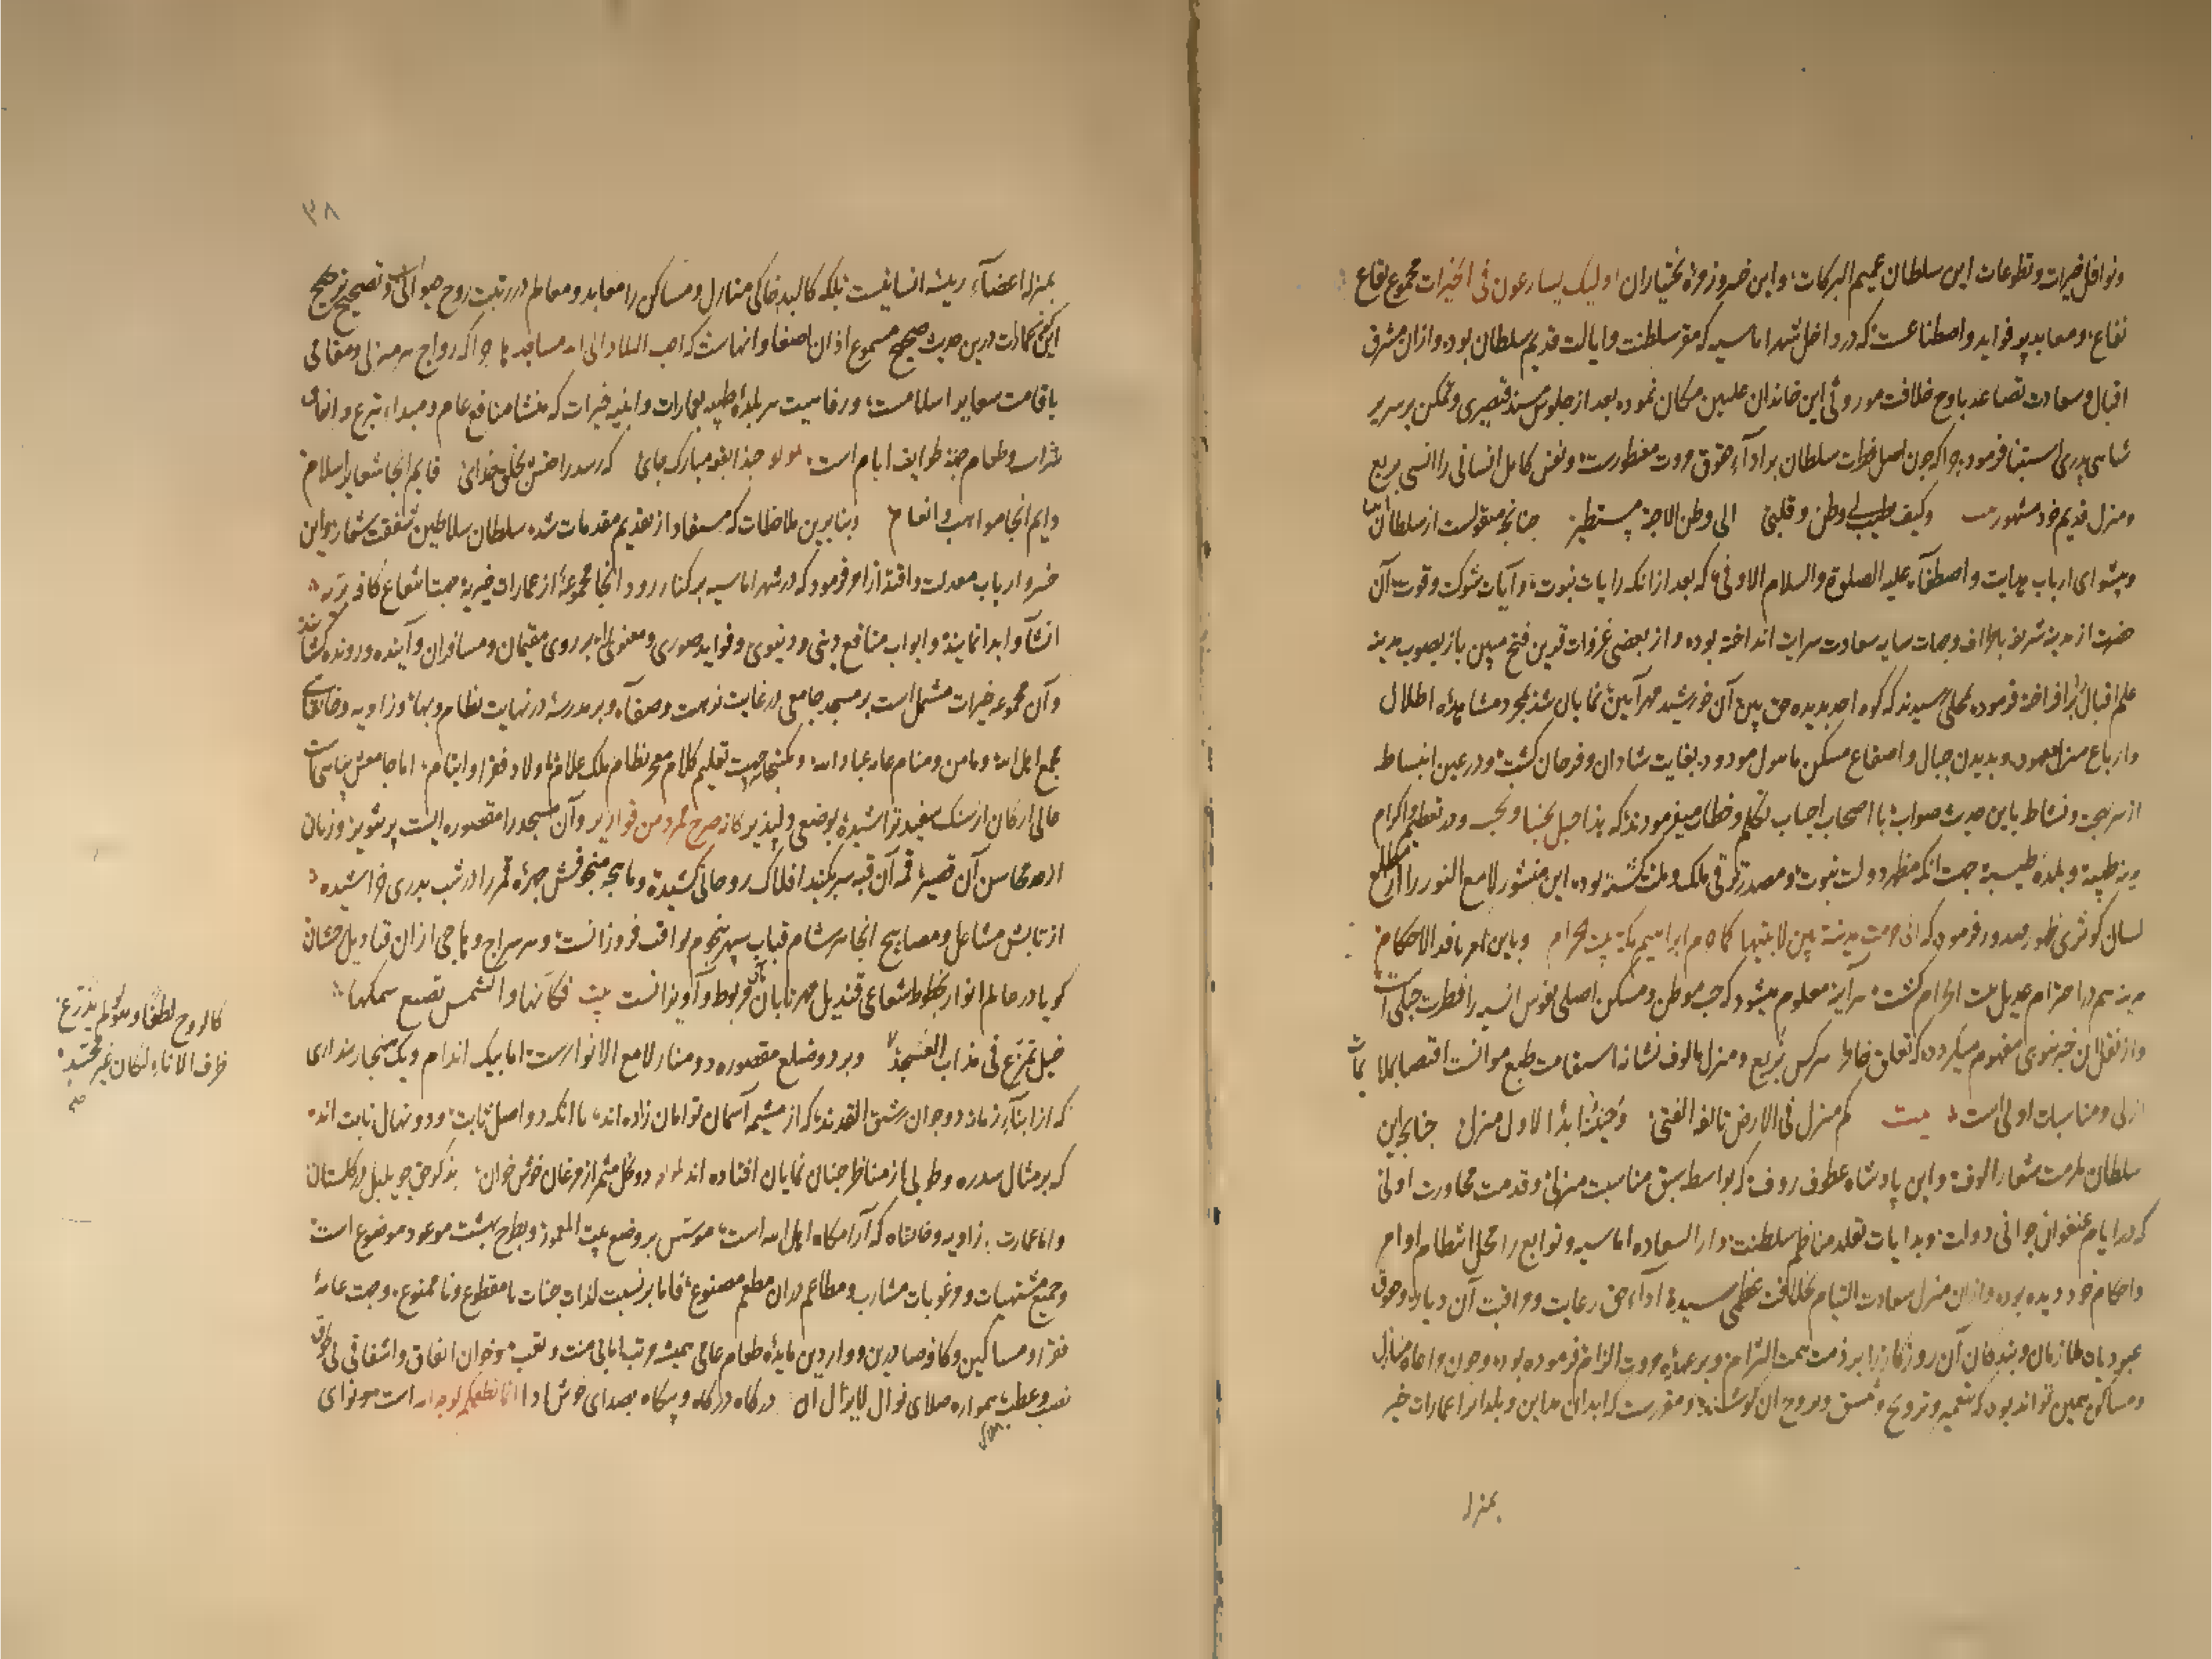 ونوافل خیرات و تطوعات این سلطان عمیم البرکات، و این خسرو زمرهٔ بختیاران اولیک یسارعون فی الخیرات مجموع بقاع
نفاع، ومعابد پر فواید و اصطناعست که در داخل شهر اماسیه که مقر سلطنت و ایالت قدیم سلطان بوده و ازان مشرق
اقبال و سعادت تصاعد باوج خلافت موروثی این خاندان علیین مکان نموده بعد از جلوس مسند قیصری و تمکن بر سریر
فرموده چراکه چون اصل فطرت سلطان بر ادآء حقوق مروت مفطورست، و نفس کامل انسانی را انسی بربع
ومنزل قدیم خود مشهور وکیف یطیب لی وطن و قلبی الی وطن الاحبة یستطیر چنانچه منقولست از سلطان
وپیشوای ارباب هدایت و اصطفآء علیه الصلوة والسلام الاوفی، که بعد ازانکه رایات نبوت، و آیات شوکت و قوت آن
حضرت از مدینه شریفه باطراف و جهات سایه سعادت سرایت انداخته بوده و از بعضی غزوات قرین فتح مبین باز بصوب مدینه
علم اقبال برافراخته فرموده بمحلی رسیدند که کوه احد بدیده حق بین آن خورشید مهر آیین نمایان شد بمجرد مشاهدهٔ اطلال
و ارباع منزل معهود، وبدیدن جبال و اصقاع مسکن مانوس بغایت شادان و فرحان گشت، و در عین انبساط
از بهجت و نشاط باین حدیث صواب، با اصحاب احباب تکلم و خطاب میفرمودند که هذا جبل یحبنا و نحبه و در تعظیم و اکرام
مدینه طیبه و بلدهٔ طیبه جهت آنکه مظهر دولت نبوت، و مصدر ترقی ملک و ملت گشته بوده این منشور لامع النور را از مطلع
لسان کوثری ظهور صدور فرمود که انی حرمت مدینة بین لابتیها کما حرم ابراهیم مکة بیت الحرام وباین امر نافذ الاحکام
مدینه هم در احترام عدیل بیت الحرام گشت، هرآینه معلوم میشود که حب موطن و مسکن اصلی نفوس انسیه را فطرت جبلی است
و از نقل این خبر نبوی مفهوم میگردد، که تعلق خاطر هر کس بربع و منزل مالوف نشانه استقامت طبع موانست اقتضا بملایمات
ازلی و مناسبات اولی است، بیت کم منزل فی الارض یالفه الفتی وحنینه ابدا لاول منزل چنانچه این
سلطان مرحمت شعار الوف، و این پادشاه عطوف رووف، که بواسطه سبق مناسبت منزلی، و قدمت مجاورت اولی
که در ایام عنفوان جوانی دولت، و بدایات تقلد مناظم سلطنت، دار السعاده اماسیه و توابع را محل انتظام اوامر
واحکام خود دیده بوده و ازان منزل سعادت التیام بخلافت عظمی رسیده، ادآء حق رعایت و مراقبت آن دیار، و حقوق
ملازمان و بندگان آن روزگار را بر ذمت همت التزام، و بر عهدهٔ مروت الزام فرموده بوده و چون مراعاه منازل
ومساکن همین تواند بود که بتعمیر و ترویج و تنسیق و ترویح آن کوشند و مقررست که ابدان مداین و بلدانرا عمارات خیر
بمنزله
۳۸
بمنزله اعضآء رییسه انسانیست بلکه کالبد خاکی منازل و مساکن را معابد و معالم در رتبت روح حیوانی است، و تصحیح و ترجیح
این سخن درین حدیث صحیح مسموع اذان اصفیا و انهاست که احب البلاد الی الله مساجدها چراکه رواج هر منزلی و مقامی
باقامت معابد اسلامست، و رفاهیت هر بلده طیبه بعمارات و ابنیه خیرات که منشا منافع عام و مبداء تبرع و انفاق
شراب و طعام جهة طوایف انام است، حبذا بقعه مبارک جای که رسد راحتش بخلق خدای قایم آنجا شعایر اسلام
دایم آنجا مواهب و انعام وبنابرین ملاحظات که مستفاد از تقدیم مقدمات شد، سلطان سلاطین شفقت شعار، و این
خسرو ارباب معدلت و اقتدار امر فرمود که در شهر اماسیه بر کنار رود آنجا مجموعهٔ از عمارات خیریه جهت انتفاع کافه بریه
انشآ و ابدا نمایند، و ابواب منافع دینی و دنیوی، و فواید صوری و معنوی بر روی مقیمان و مسافران و آینده و رونده گشایند
وآن مجموعه خیرات مشتمل است بر مسجد جامعی در غایت نزهت و صفآء، و بر مدرسهٔ در نهایت نظام و بها، و زاویه و خانقاهی
مجمع اهل الله، و مامن و منام عامه عباد الله، و مکتبخانه جهت تعلیم کلام معجز نظام ملک علام، باولاد فقرا و ایتام، اما جامعش بناییست
عالی ارکان از سنک سفید تراشیده، بوضعی دلپذیر کانه صرح ممرد من قواریر و آن مسجد را مقصوره ایست
محاسن آن قصیر، قمه آن قبه سر بکمند افلاک روحانی کشیده و ماهچه منجوقش چهرهٔ قمر را در شب بدری خراشیده
از تابش مشاعل و مصابیح آنجا هر شام قباب سپهر بنجوم ثواقب فروزانست، و هر سراج وهاجی ازان قنادیل رخشان
گویا در عالم انوار بخطوط شعاعی قندیل مهر تابان آن مربوط و آویزانست بیت فکانها والشمس تصبغ سمکها
خیل تمرغ فی مذاب العسجد وبر دو ضلع مقصوره دو منار لامع الانوارست، اما بیک اندام و یک هنجار پنداری
که از ابنآء زمانه دو جوان رشیق القدند، که از مشیمه آسمان توامان زاده اند، یا آنکه دو اصل ثابت، و دو نهال نابت اند
که بر مثال سدره و طوبی از مناظر جنان نمایان افتاده اند دو نخل مثمر از مرغان خوش خوان بذکر حق چو بلبل در گلستان
واما عمارت زاویه و خانقاه که آرامگاه اهل الله است، موسس بر وضع بیت المعمور و بطرح بهشت موعود موضوع است
وجمیع مشتهیات و مرغوبات مشارب و مطاعم دران مطعم مصنوع، فاما بر نسبت لذات جنات نامقطوع و ناممنوع، و جهت عامهٔ
فقرا و مساکین و کافه صادرین و واردین مایدهٔ طعام عامی همیشه مرتب امابی منت و تعب، و خوان انفاق و اشفاقی
همواره صلای نوال لایزال آن درگاه و بیگاه بصدای خوش ادا انما نطعمکم لوجه الله است مونوای
کالروح لطفا ولو لم یدرع
ظرف الاناء لکان غیر مجسد
صح